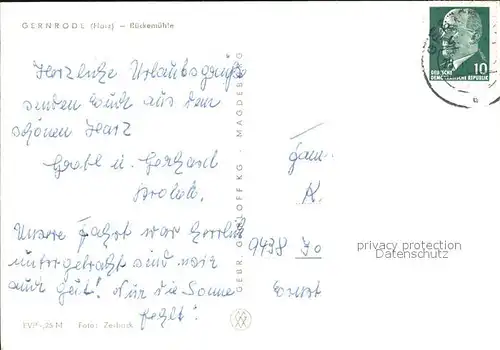 GERNRODE (Harz) – Bückemühle
Herzliche Urlaubsgrüße
senden Euch aus dem
schönen Harz
Gretl u. Gerhard
Unsere Fahrt war herrlich
untergebracht sind wir
auch gut! Nur die Sonne
fehlt!
GEBR. GARLOFF KG. MAGDEBURG
10
DEUTSCHE
DEMOKRATISCHE REPUBLIK
Fam.
K.
9438 Jo
privacy protection
Datenschutz
Foto: Zerback